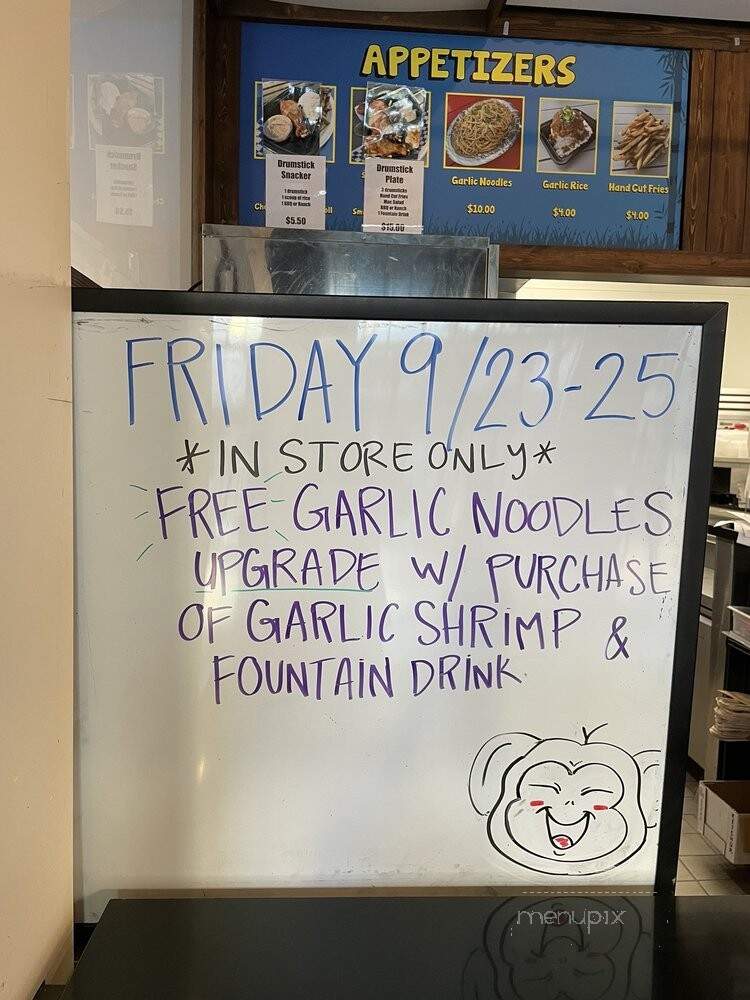 APPETIZERS
Drumstick
Snacker
1 drumstick
1 scoop of rice
1 BBQ or Ranch
$5.50
Drumstick
Plate
3 drumsticks
Hand Cut Fries
Mac Salad
BBQ or Ranch
1 Fountain Drink
$15.00
Garlic Noodles
$10.00
Garlic Rice
$4.00
Hand Cut Fries
$4.00
FRIDAY 9/23-25
*IN STORE ONLY*
FREE GARLIC NOODLES
UPGRADE W/ PURCHASE
OF GARLIC SHRIMP &
FOUNTAIN DRINK
menupix